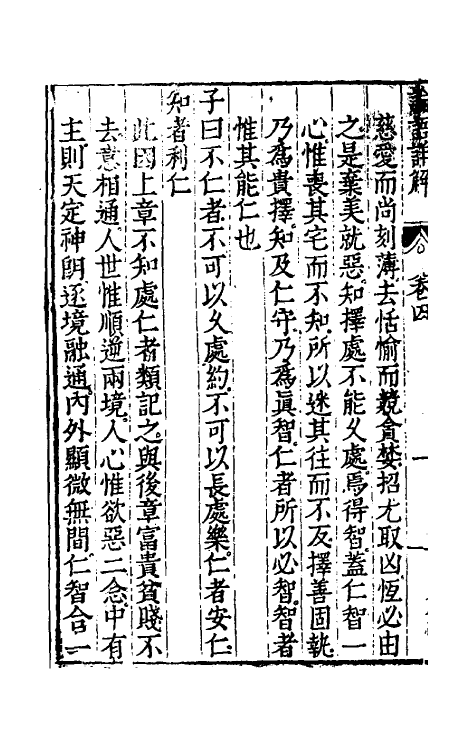 論語詳解 卷四
慈愛而尚刻薄去恬愉而競貪婪招尤取凶恆必由
之是棄美就惡知擇處不能久處焉得智蓋仁智一
心惟喪其宅而不知所以迷其往而不反擇善固執
乃為貴擇知及仁守乃為眞智仁者所以必智智者
惟其能仁也
子曰不仁者不可以久處約不可以長處樂仁者安仁
知者利仁
此因上章不知處仁者類記之與後章富貴貧賤不
去意相通人世惟順逆兩境人心惟欲惡二念中有
主則天定神閒逐境融通內外顯微無間仁智合一